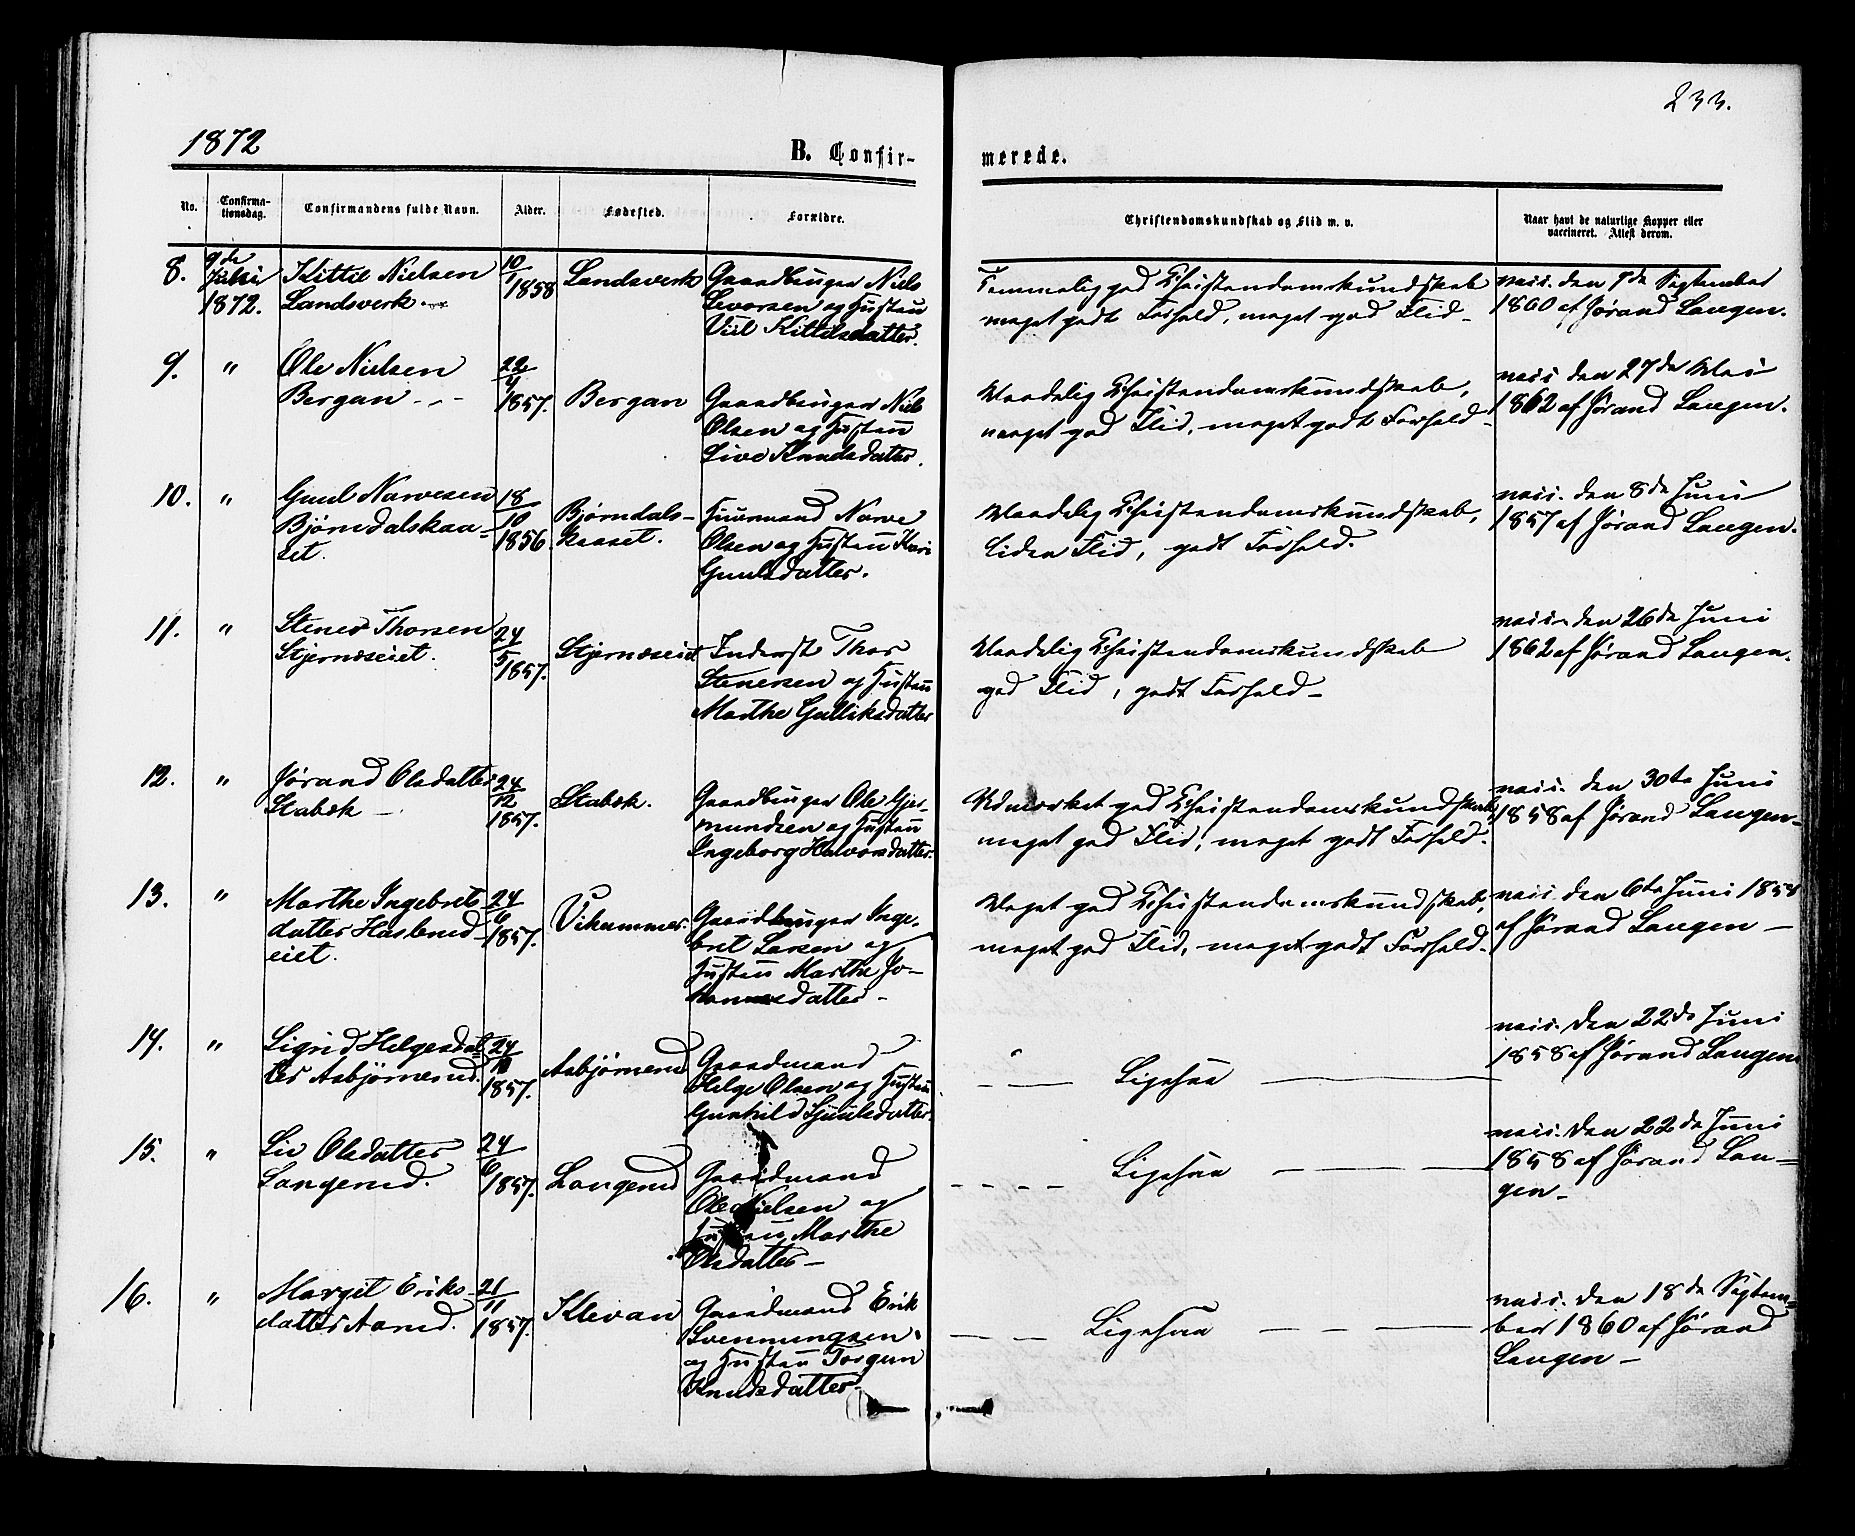 233.
1872
B. Confir-
merede.
No.
Confirma-
tionsdag.
Confirmandens fulde Navn.
Alder.
Fødested.
Forældre.
Christendomskundskab og Flid m. v.
Naar havt de naturlige Kopper eller
vaccineret. Attest derom.
8.
9de
Juli
1872.
Kittil Nielsen
Landsverk
10/1 1858
Landsverk
Gaardbruger Niels
Evorsen og Hustru
Kittilsdatter.
Temmelig god Christendomskundskab
meget godt Forhold, meget god Flid
vacc. den 7de September
1860 af Jørand Langen.
9.
"
Ole Nielsen
Bergan
22/4
1857.
Bergan
Gaardbruger Niels
Olsen og Hustru
Live Knudsdatter.
Maadelig Christendomskundskab,
meget god Flid, meget godt Forhold
vacc. den 27de Mai
1862 af Jørand Langen.
10.
"
Guul Narvesen
Bjørndalskaa-
set.
18/10
1856.
Bjørndals-
kaaset.
Huusmand Narve
Olsen og Hustru Kari
Guulsdatter.
Maadelig Christendomskundskab,
liden Flid, godt Forhold.
vacc. den 8de Juni
1857 af Jørand Langen.
11.
"
Stener Thorsen
Stjernæseiet.
24/5 1857.
Stjernæseiet
Inderst Thor
Stenersen og Hustru
Marthe Gulliksdatter
Maadelig Christendomskundskab
god Flid, godt Forhold
vacc. den 26de Juni
1862 af Jørand Langen.
12.
"
Jørand Olsdatter
Stabæk
24/12
1857.
Stabæk.
Gaardbruger Ole Gjer-
mundsen og Hustru
Ingeborg Halvorsdatter.
Udmærket god Christendomskundskab,
meget god Flid, meget godt Forhold.
vacc. den 30te Juni
1858 af Jørand Langen
13.
"
Marthe Ingebrets
datter Haslerud
eiet.
24/6
1857.
Vikammer.
Gaardbruger Inge-
bret Larsen og
Hustru Marthe Jo-
hannesdatter
Meget god Christendomskundskab,
meget god Flid, meget godt Forhold.
vacc. den 6te Juni 1858
af Jørand Langen
14.
"
Sigrid Helgesdat
ter Asbjørnerud.
24/10
1857.
Asbjørnerud
Gaardmand
Helge Olsen og Hustru
Gunhild Sjuulsdatter.
Ligesaa
vacc. den 22de Juni
1858 af Jørand Langen
15.
"
Liv Olsdatter
Langerud.
24/6
1857.
Langerud
Gaardmand
Ole Nielsen og
Hustru Marthe
Olsdatter
Ligesaa
vacc. den 22de Juni
1858 af Jørand Lan-
gen
16.
"
Margit Eriks-
datter Aarud.
21/11
1857.
Klevan
Gaardmand Erik
Svenningsen
og Hustru Torgun
Knudsdatter.
Ligesaa
vacc. den 18de Septem-
ber 1860 af Jørand
Langen